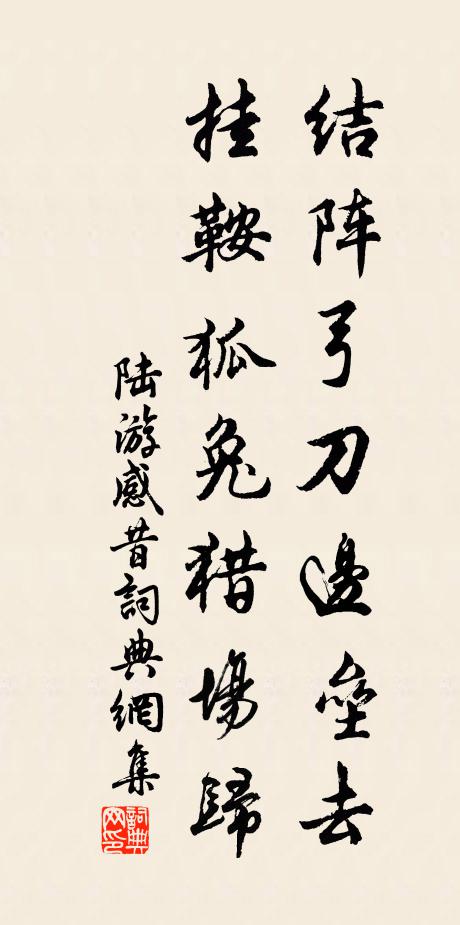 结阵弓刀邊壘去
挂鞍狐兔猎場歸
陆游感昔詞典網集
詞典网印